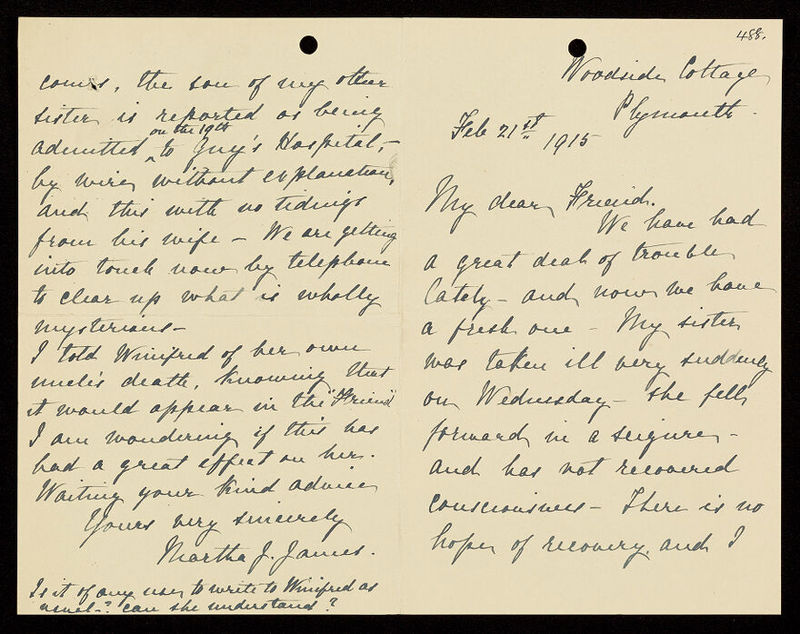 488.
Woodside Cottage
Plymouth.
Feb 21st 1915
My dear Friend.
We have had
a great deal of trouble
lately - and now we have
a fresh one - My sister
was taken ill very suddenly
on Wednesday - she fell
forward in a seizure -
and has not recovered
consciousness - There is no
hope of recovery. and I
comes, the son of my other
sister is reported as being
on the 19th
admitted ^ to Guy's Hospital, -
by wire, without explanation,
and this with no tidings
from his wife - We are getting
into touch now by telephone
to clear up what is wholly
mysterious -
I told Winifred of her own
uncle's death, knowing that
it would appear in the "Friend"
I am wondering if this has
had a great effect on her.
Waiting your kind advice
Yours very sincerely
Martha J. James.
Is it of any use, to write to Winifred as
usual -? can she understand?